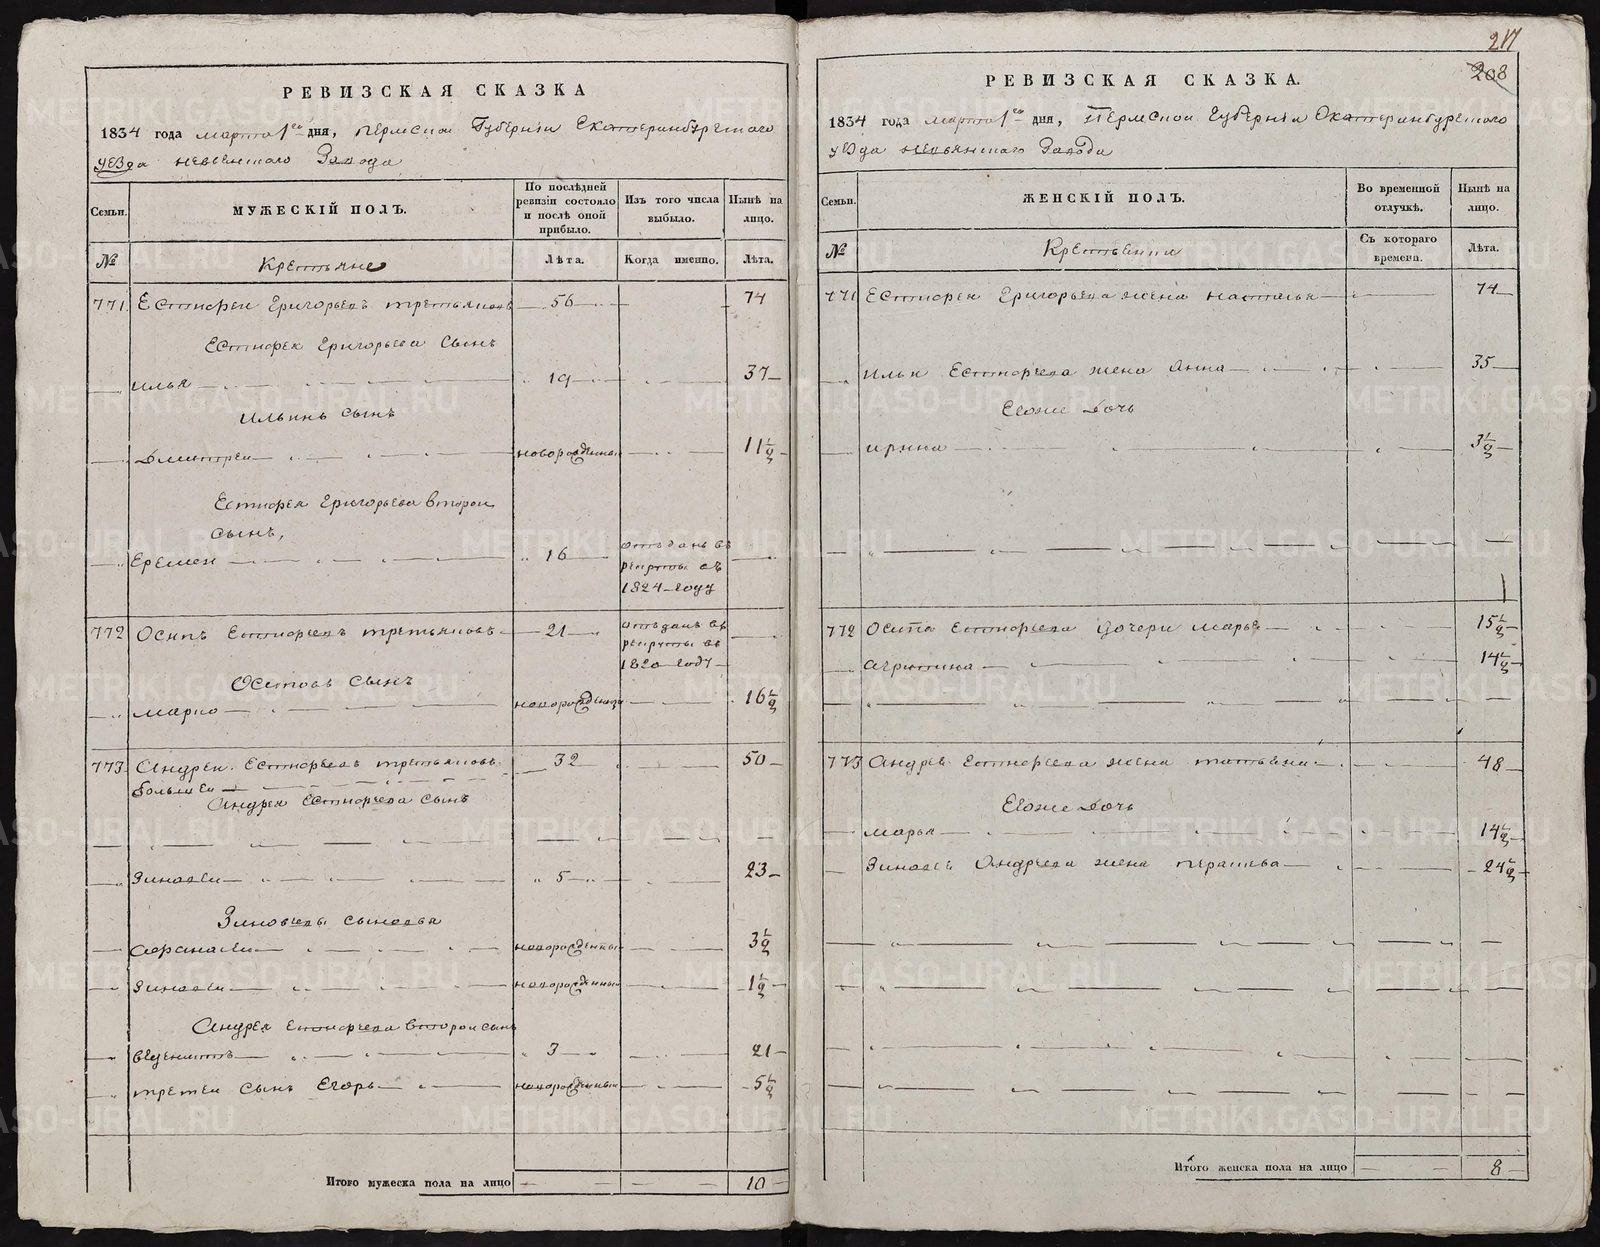 РЕВИЗСКАЯ СКАЗКА
1834 года марта 1го дня, пермской Губернiи Екатеринбургскаго
уезда невьянскаго Завода
Семьи.
МУЖЕСКIЙ ПОЛЪ.
По послѣдней ревизiи состояло и послѣ оной прибыло.
Изъ того числа выбыло.
Нынѣ на лицо.
№
Крестьяне
Лѣта.
Когда именно.
Лѣта.
771 Естифеи Григорьевъ третьяковъ 56 74
Естифея Григорьева Сынъ
илья 19 37
ильинъ сынъ
дмитреи новорожденныи 11½
Естифея Григорьева второи
сынъ,
Еремеи 16 отъданъ въ
рекруты въ
1824 году
772 Осипъ Естифьевъ третьяковъ 21 отъданъ въ
рекруты въ
1820 году
Осиповъ сынъ
марко новорожденныи 16½
773 Андреи Естифьевъ третьяковъ 32 50
большеи
Андрея Естифьева сынъ
Зиновеи 5 23
Зиновьевы сыновья
Афанасеи новорожденныи 3½
Зиновеи новорожденныи 1½
Андрея Естифьева второи сынъ
викентей 3 21
третеи сынъ Егоръ новорожденныи 5½
Итого мужеска пола на лицо 10
217
208
РЕВИЗСКАЯ СКАЗКА.
1834 года марта 1го дня, Пермской Губернiи Екатеринбургскаго
уезда невьянскаго Завода
Семьи.
ЖЕНСКIЙ ПОЛЪ.
Во временной отлучкѣ.
Нынѣ на лицо.
№
Крестьянки
Съ котораго времени.
Лѣта.
771 Естифея Григорьева жена наталья 74
ильи Естифьева жена Анна 35
Евоже дочь
ирина 3½
772 Осипа Естифьева дочери марья 15½
агрипина 14½
773 Андрея Естифьева жена татьяна 48
Евоже дочь
марья 14½
Зиновья Андреева жена 24½
Итого женска пола на лицо 8
METRIKI.GASO-URAL.RU